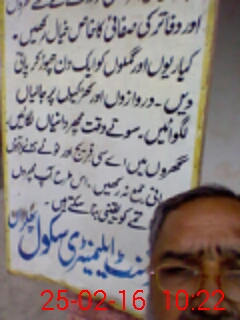 اور دفاتر کی صفائی کا خاص خیال رکھیں۔
کیاریوں اور گملوں کو ایک دن چھوڑ کر پانی
دیں۔ دروازوں اور کھڑکیوں پر جالیاں
لگوائیں۔ سوتے وقت مچھر دانیاں لگائیں۔
گھروں میں اے سی فریج اور ٹوٹے ہوئے برتنوں
پانی جمع نہ رکھیں۔ اس طرح آپ مچھروں
کو یقینی بنا سکتے ہیں۔
ایلیمنٹری سکول
25-02-16 10:22